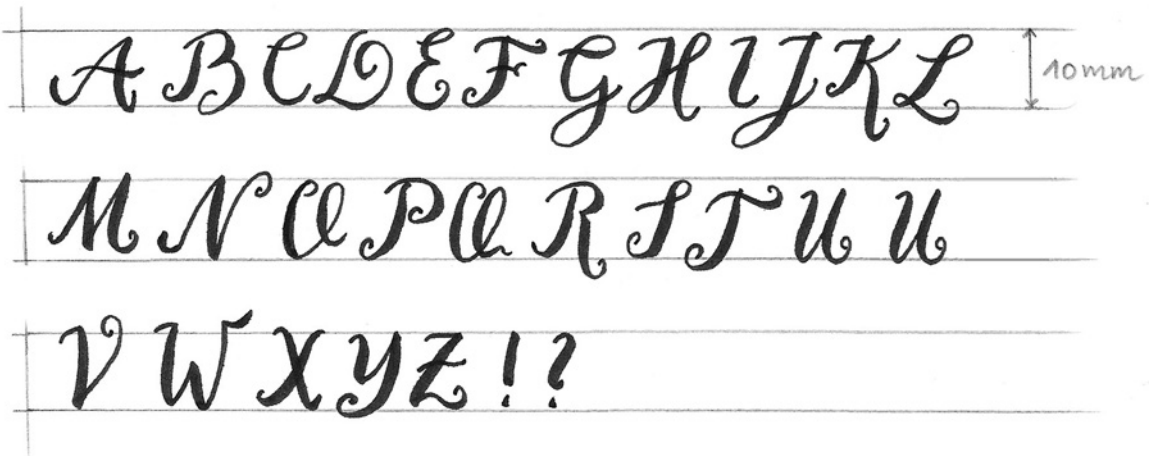 A B C D E F G H I J K L 10mm
M N O P Q R S T U U
V W X Y Z ! ?